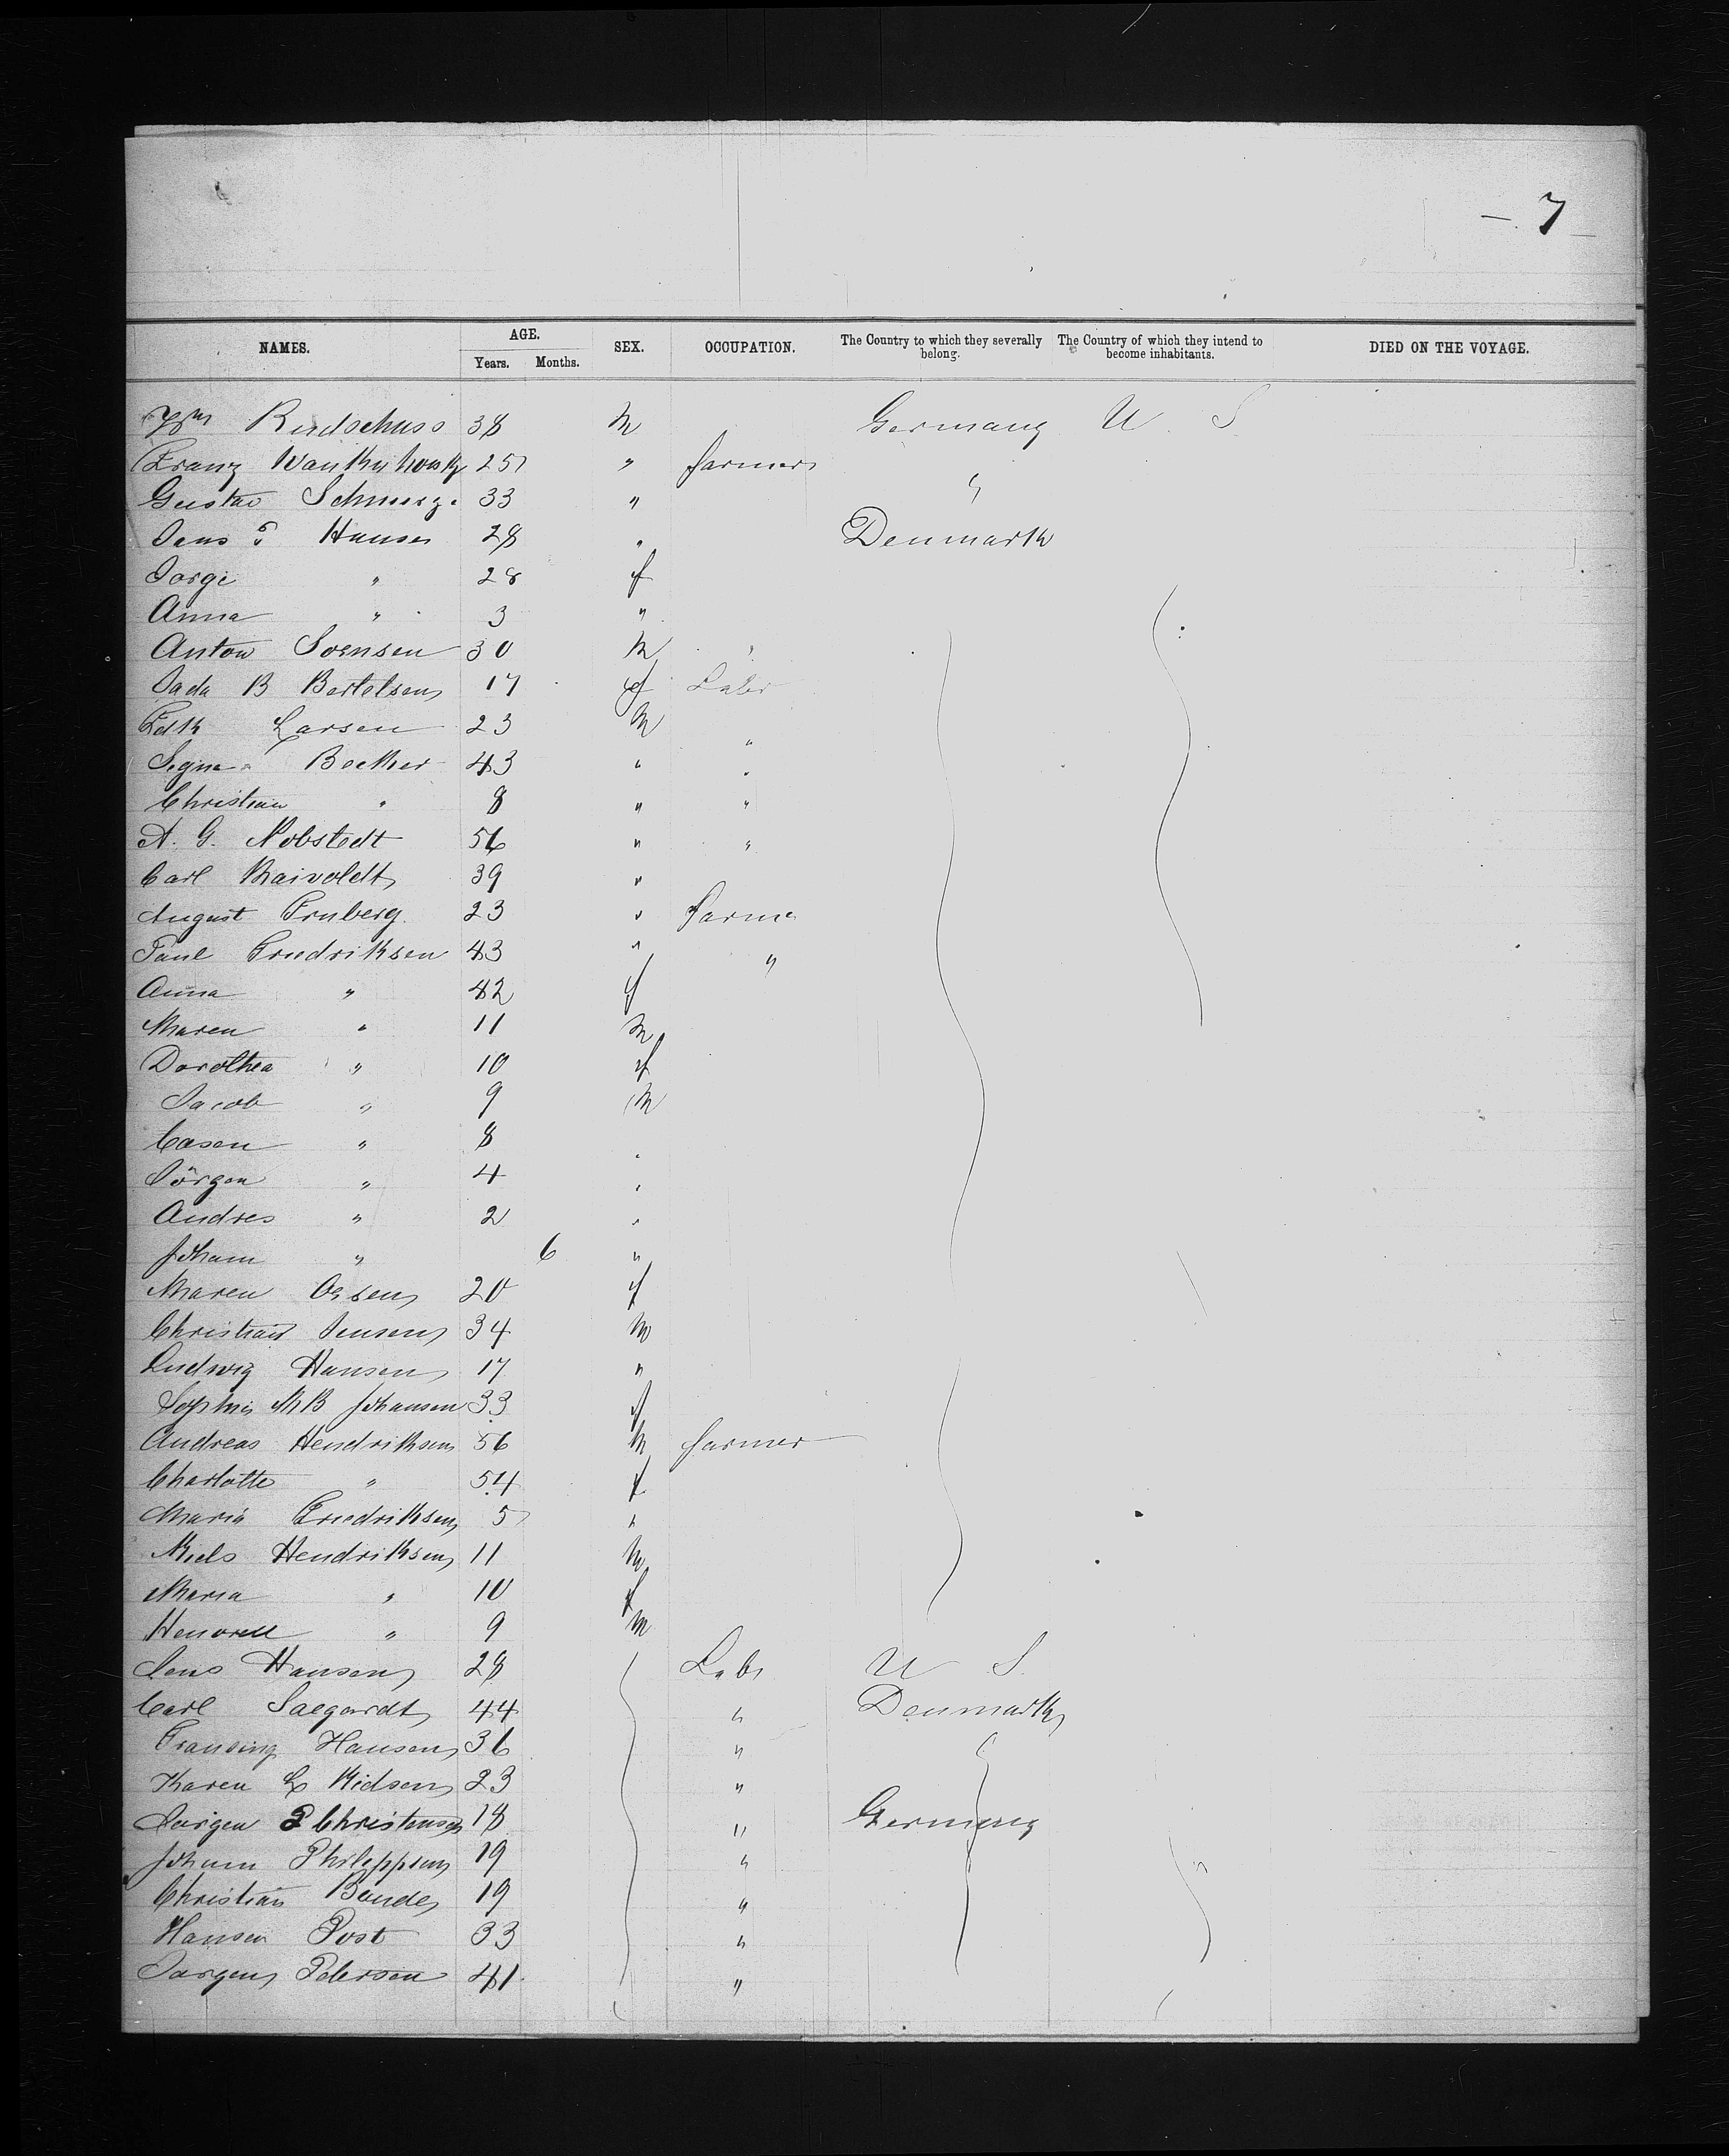 - 7 -
NAMES. AGE. SEX. OCCUPATION. The Country to which they severally belong. The Country of which they intend to become inhabitants. DIED ON THE VOYAGE.
Years. Months.
Wm Rudschuss 38 M Germany U. S
Franz 25 " farmer
Gustav Schmerz. 33 " "
Jens P Hansen 28 " Denmark
Jorgi " 28 f
Anna " 3 "
Anton Sorensen 30 M "
Jada B Bertelsen 17 f Labr
Fdk Larsen 23 M "
Signe Becker 43 " "
Christian " 8 " "
A. G. Nobstedt 56 " "
Carl Raivoldt 39 "
August Fruberg 23 " Farme
Paul Friedriksen 43 " "
Anna " 42 f
Maren " 11 M
Dorothea " 10 f
Jacob " 9 M
Casen " 8 "
Jörgen " 4 "
Andres " 2 "
Johann " 6 "
Maren 20 f
Christian Jensen 34 M
Ludwig Hansen 17 "
Sophie M B Johansen 33 f
Andreas Hendriksen 56 M farmer
Charlotte " 54 f
Maria Friedriksen 5 "
Niels Hendriksen 11 M
Maria " 10 f
" 9 M
Jens Hansen 28 Labr U S.
Carl Saegardt 44 " Denmark
Hansen 36 "
Karen 23 "
Jorgen P Christensen 18 " Germany
Johann Philippsen 19 "
Christian Bande 19 "
Hansen Post 33 "
Jorgen Petersen 41 "